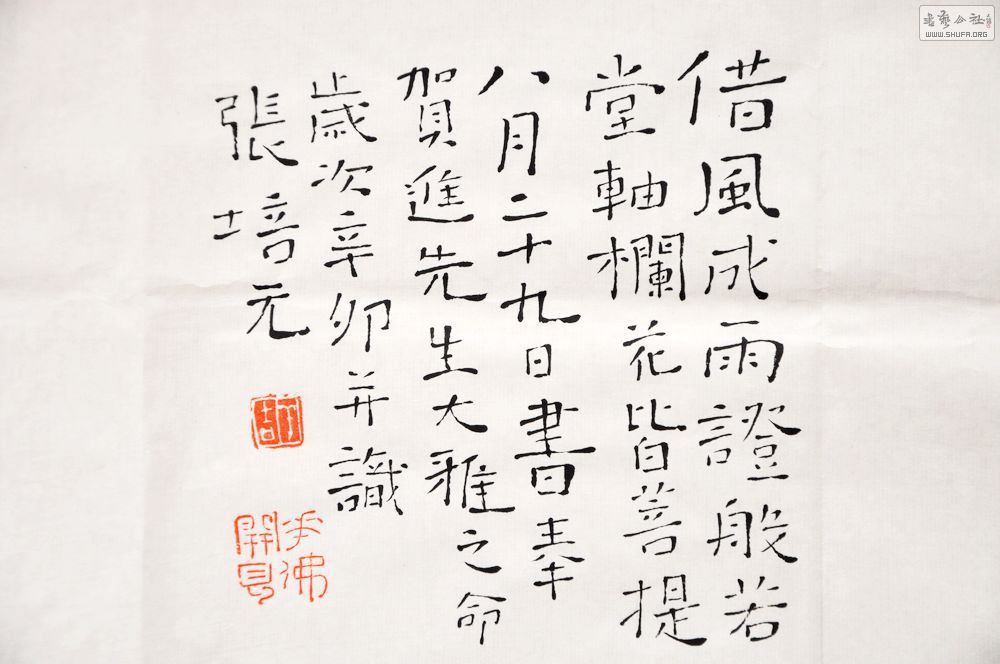 借風成雨證般若
堂軸欄花皆菩提
八月二十九日書奉
賀進先生大雅之命
歲次辛卯并識
張培元
書藝公社
WWW.SHUFA.ORG